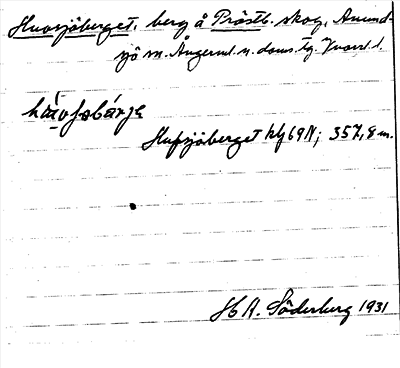 Huvsjöberget, berg å Prästb. skog, Anund-
sjö sn. Ångerml. n. doms. tg. Västernorrl. l.
hùvʃəbárjə
Hufsjöberget hfj 69 N; 357,8 m.
H A. Söderberg 1931